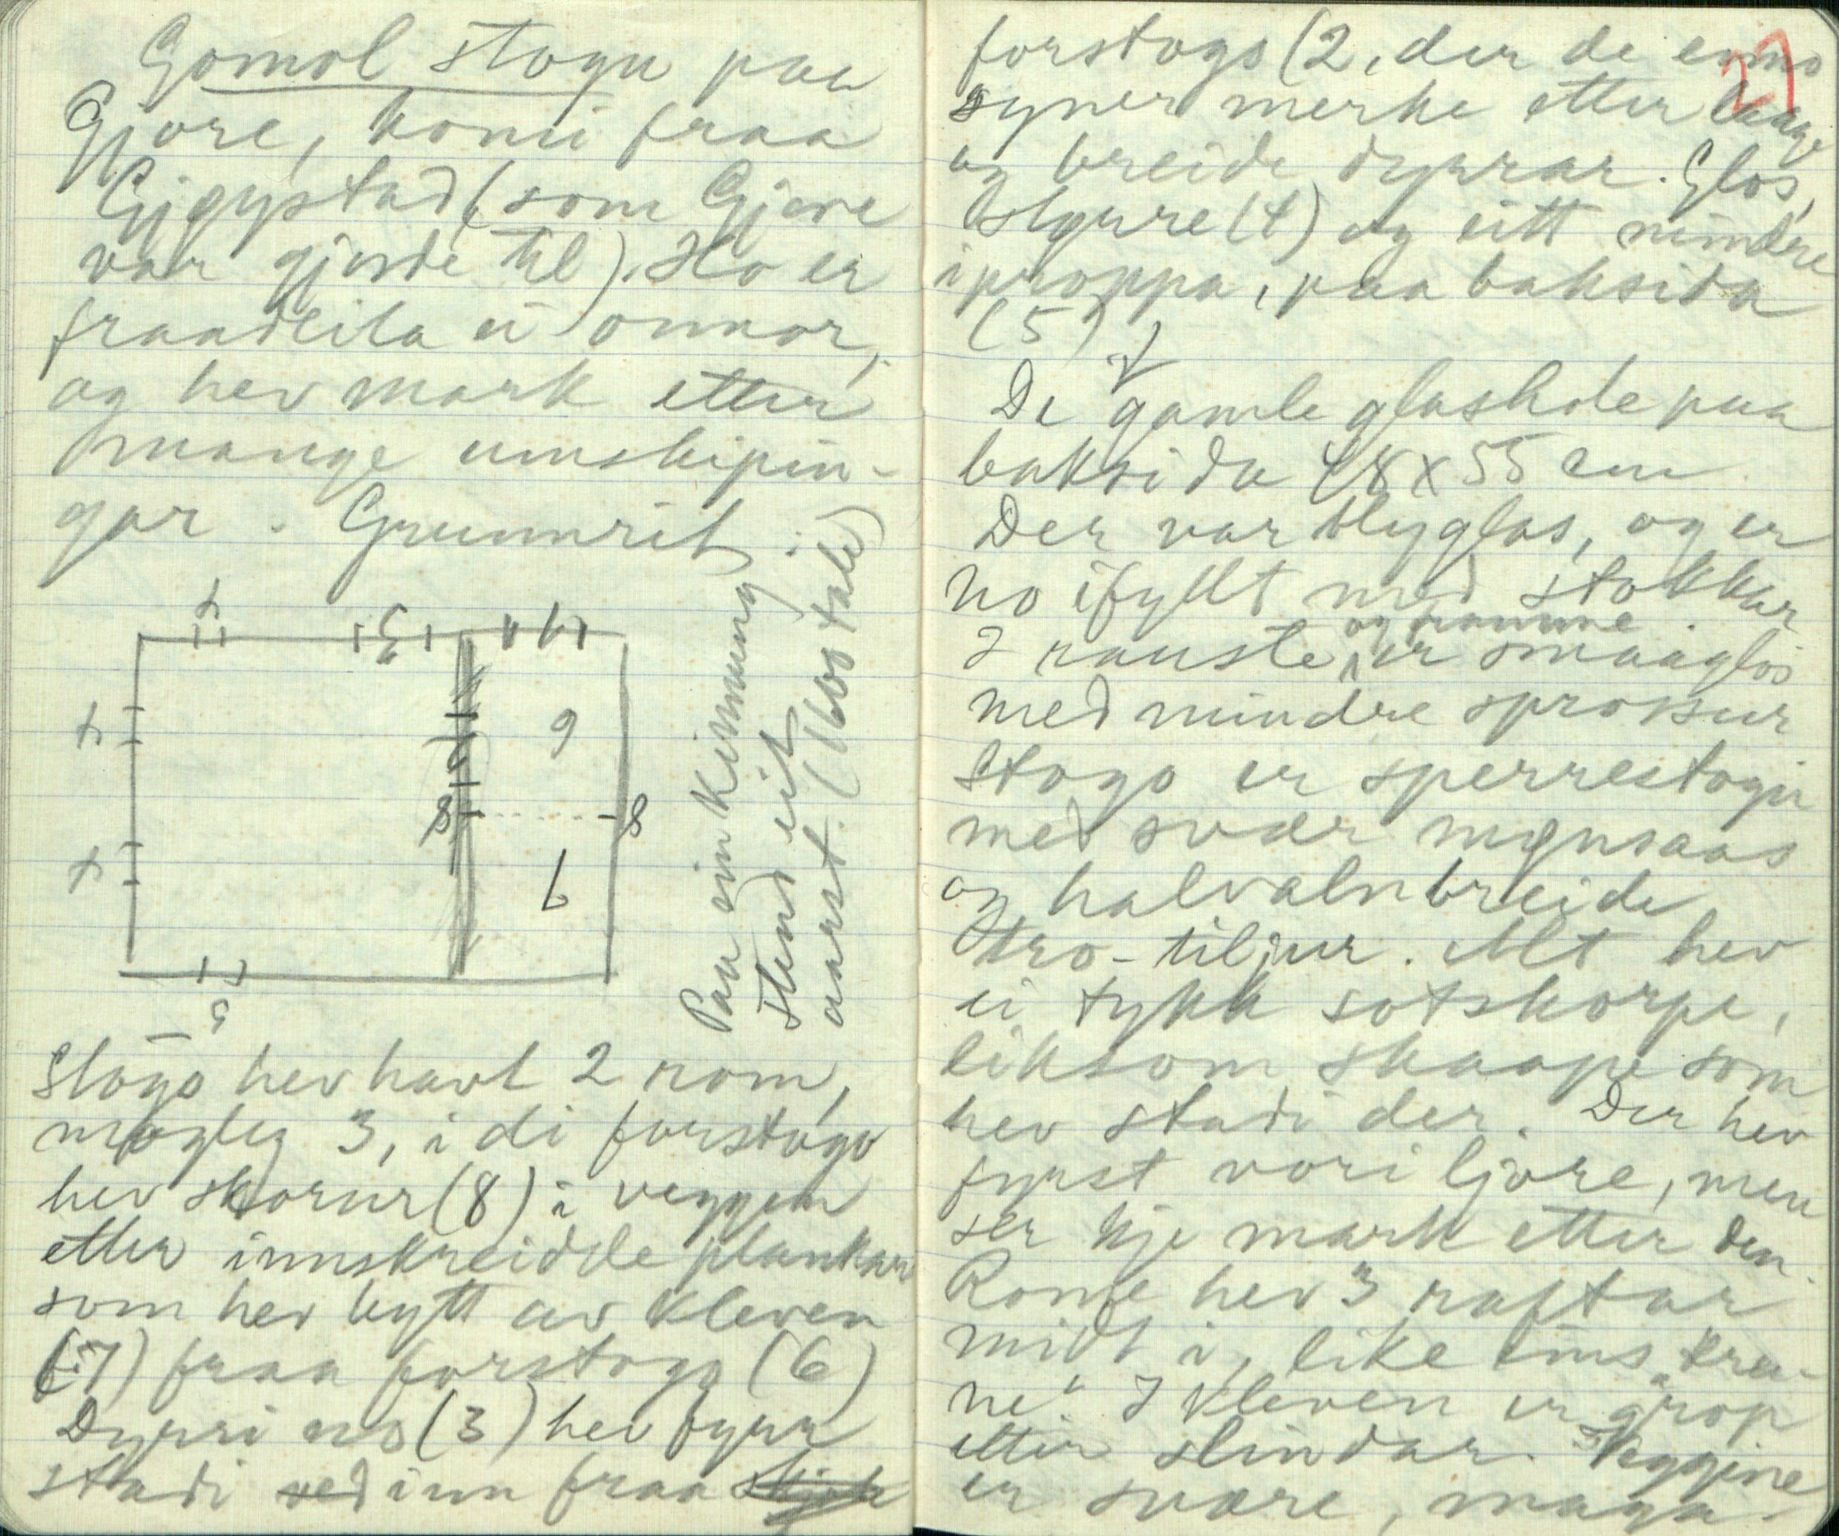 Gomol stogu paa
Gjøre, komi fraa
Gjøystad (som Gjøre
var gjorde til). Ho er
fraadeila ei onnor,
og hev mark etter
mange umskipin-
gar. Grunnrit:
4
3
4
6
8
8
4
5
Paa ein kimming
stend eit
aarst. (1600 tale)
Stogo hev havt 2 rom,
møgleg 3, i di forstogo
hev skorur (8) i veggen
etter innskreidde plankar
som hev bytt av kleven
(7) fraa forstogo (6)
Dyrri no (3) hev fyrr
stadi inn fraa
27
forstogo (2, der de enno
syner merke etter laage
og breide dyrrar. Glas,
(4) og eitt mindre
i proppa, paa baksida
(5)
De gamle glashole paa
baksida 48 x 55 cm
Der var blyglas, og er
no ifyllt med stokkar
og framme
I rauste er smaaglas
med mindre sprossur
Stogo er sperrestogu
med svær mønsaas
og halvaln breide
tro-tiljur. Alt hev
ei tykk sotskorpe,
liksom skaape som
hev stadi der. Der hev
fyrst vori ljore, men
ser kje mark etter den.
Rome hev 3 raftar
midt i, like eins "kru-
ne" I kleven er grop
etter slindar. Veggine
er svære, maga-